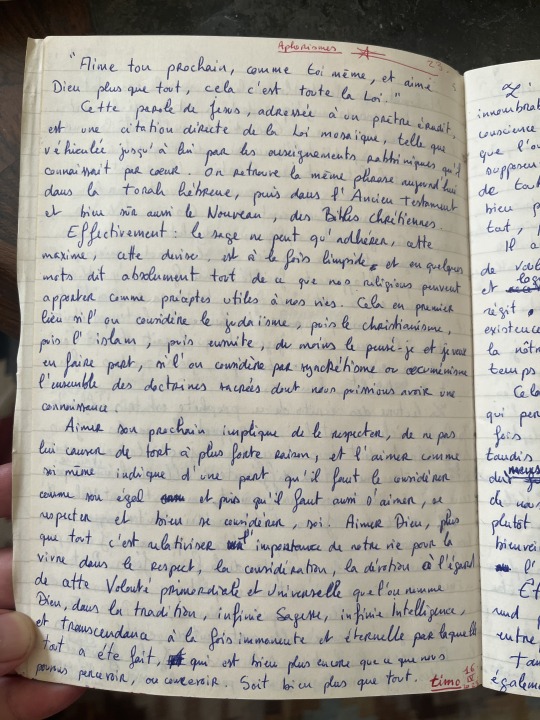 Aphorismes
"Aime ton prochain, comme toi même, et aime
Dieu plus que tout, cela c'est toute la Loi."
Cette parole de Jesus, adressée à un prêtre érudit,
est une citation directe de la Loi mosaïque, telle que
véhiculée jusqu'à lui par les enseignements rabbiniques qu'il
connaissait par cœur. On retrouve la même phrase aujourd'hui
dans la Torah hébreue, puis dans l'Ancien Testament
et bien sûr aussi le Nouveau, des Bibles Chrétiennes.
Effectivement : le sage ne peut qu'adhérer, cette
maxime, cette devise, est à la fois limpide, et en quelques
mots dit absolument tout de ce que nos religions peuvent
apporter comme préceptes utiles à nos vies. Cela en premier
lieu si l'on considère le judaïsme, puis le christianisme,
puis l'islam, puis ensuite, du moins le pensé-je et je veux
en faire part, si l'on considère par synchrétisme ou œcuménisme
l'ensemble des doctrines sacrées dont nous puissions avoir une
connaissance.
Aimer son prochain implique de le respecter, de ne pas
lui causer de tort à plus forte raison, et l'aimer comme
soi même indique d'une part qu'il faut le considérer
comme son égal et puis qu'il faut aussi s'aimer, se
respecter et bien se considérer, soi. Aimer Dieu, plus
que tout c'est relativiser l'importance de notre vie pour la
vivre dans le respect, la considération, la dévotion à l'égard
de cette Volonté primordiale et Universelle que l'on nomme
Dieu, dans la tradition, infinie Sagesse, infinie Intelligence,
et transcendance à la fois immanente et éternelle par laquelle
tout a été fait, qui est bien plus encore que ce que nous
pouvons percevoir, ou concevoir. Soit bien plus que tout. timo
L'
innombrab
conscience
que l'o
supposer
de tout
bien p
tout,
Il a
de vol
et
régit
existence
la nôtr
temps
Cela
qui per
fois
tandis
de nos
plutôt
bienvei
l'
Et
rend
entre
Tan
égalem